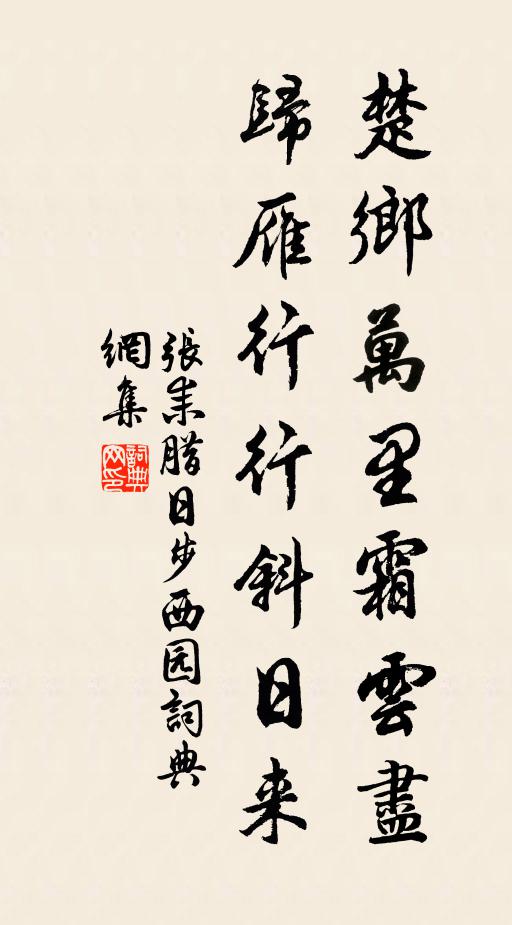 楚鄉萬里霜雲盡
歸雁行行斜日来
張耒腊日步西园詞典
網集
詞典
网印